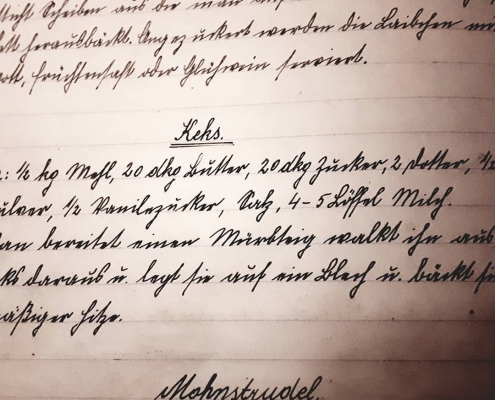 sticht Scheiben aus die man
herausbäckt. Angezuckert werden die Laibchen mit
Fruchtensaft oder Glühwein serviert.
Keks.
: ½ kg Mehl, 20 dkg Butter, 20 dkg Zucker, 2 Dotter, ½
pulver, ½ Vanilezucker, Salz, 4-5 Löffel Milch.
an bereitet einen Mürbteig walkt ihn aus
ks daraus u. legt sie auf ein Blech u. bäckt sie
äßiger Hitze.
Mohnstrudel.